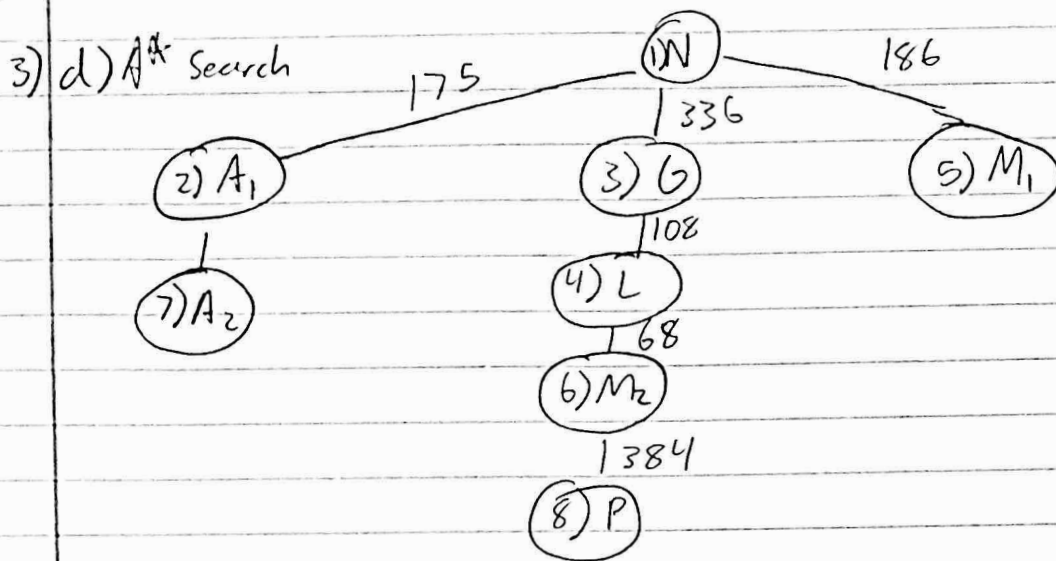 3) d) A* Search
1) N
175
336
186
2) A1
3) G
5) M1
108
4) L
7) A2
68
6) M2
1384
8) P